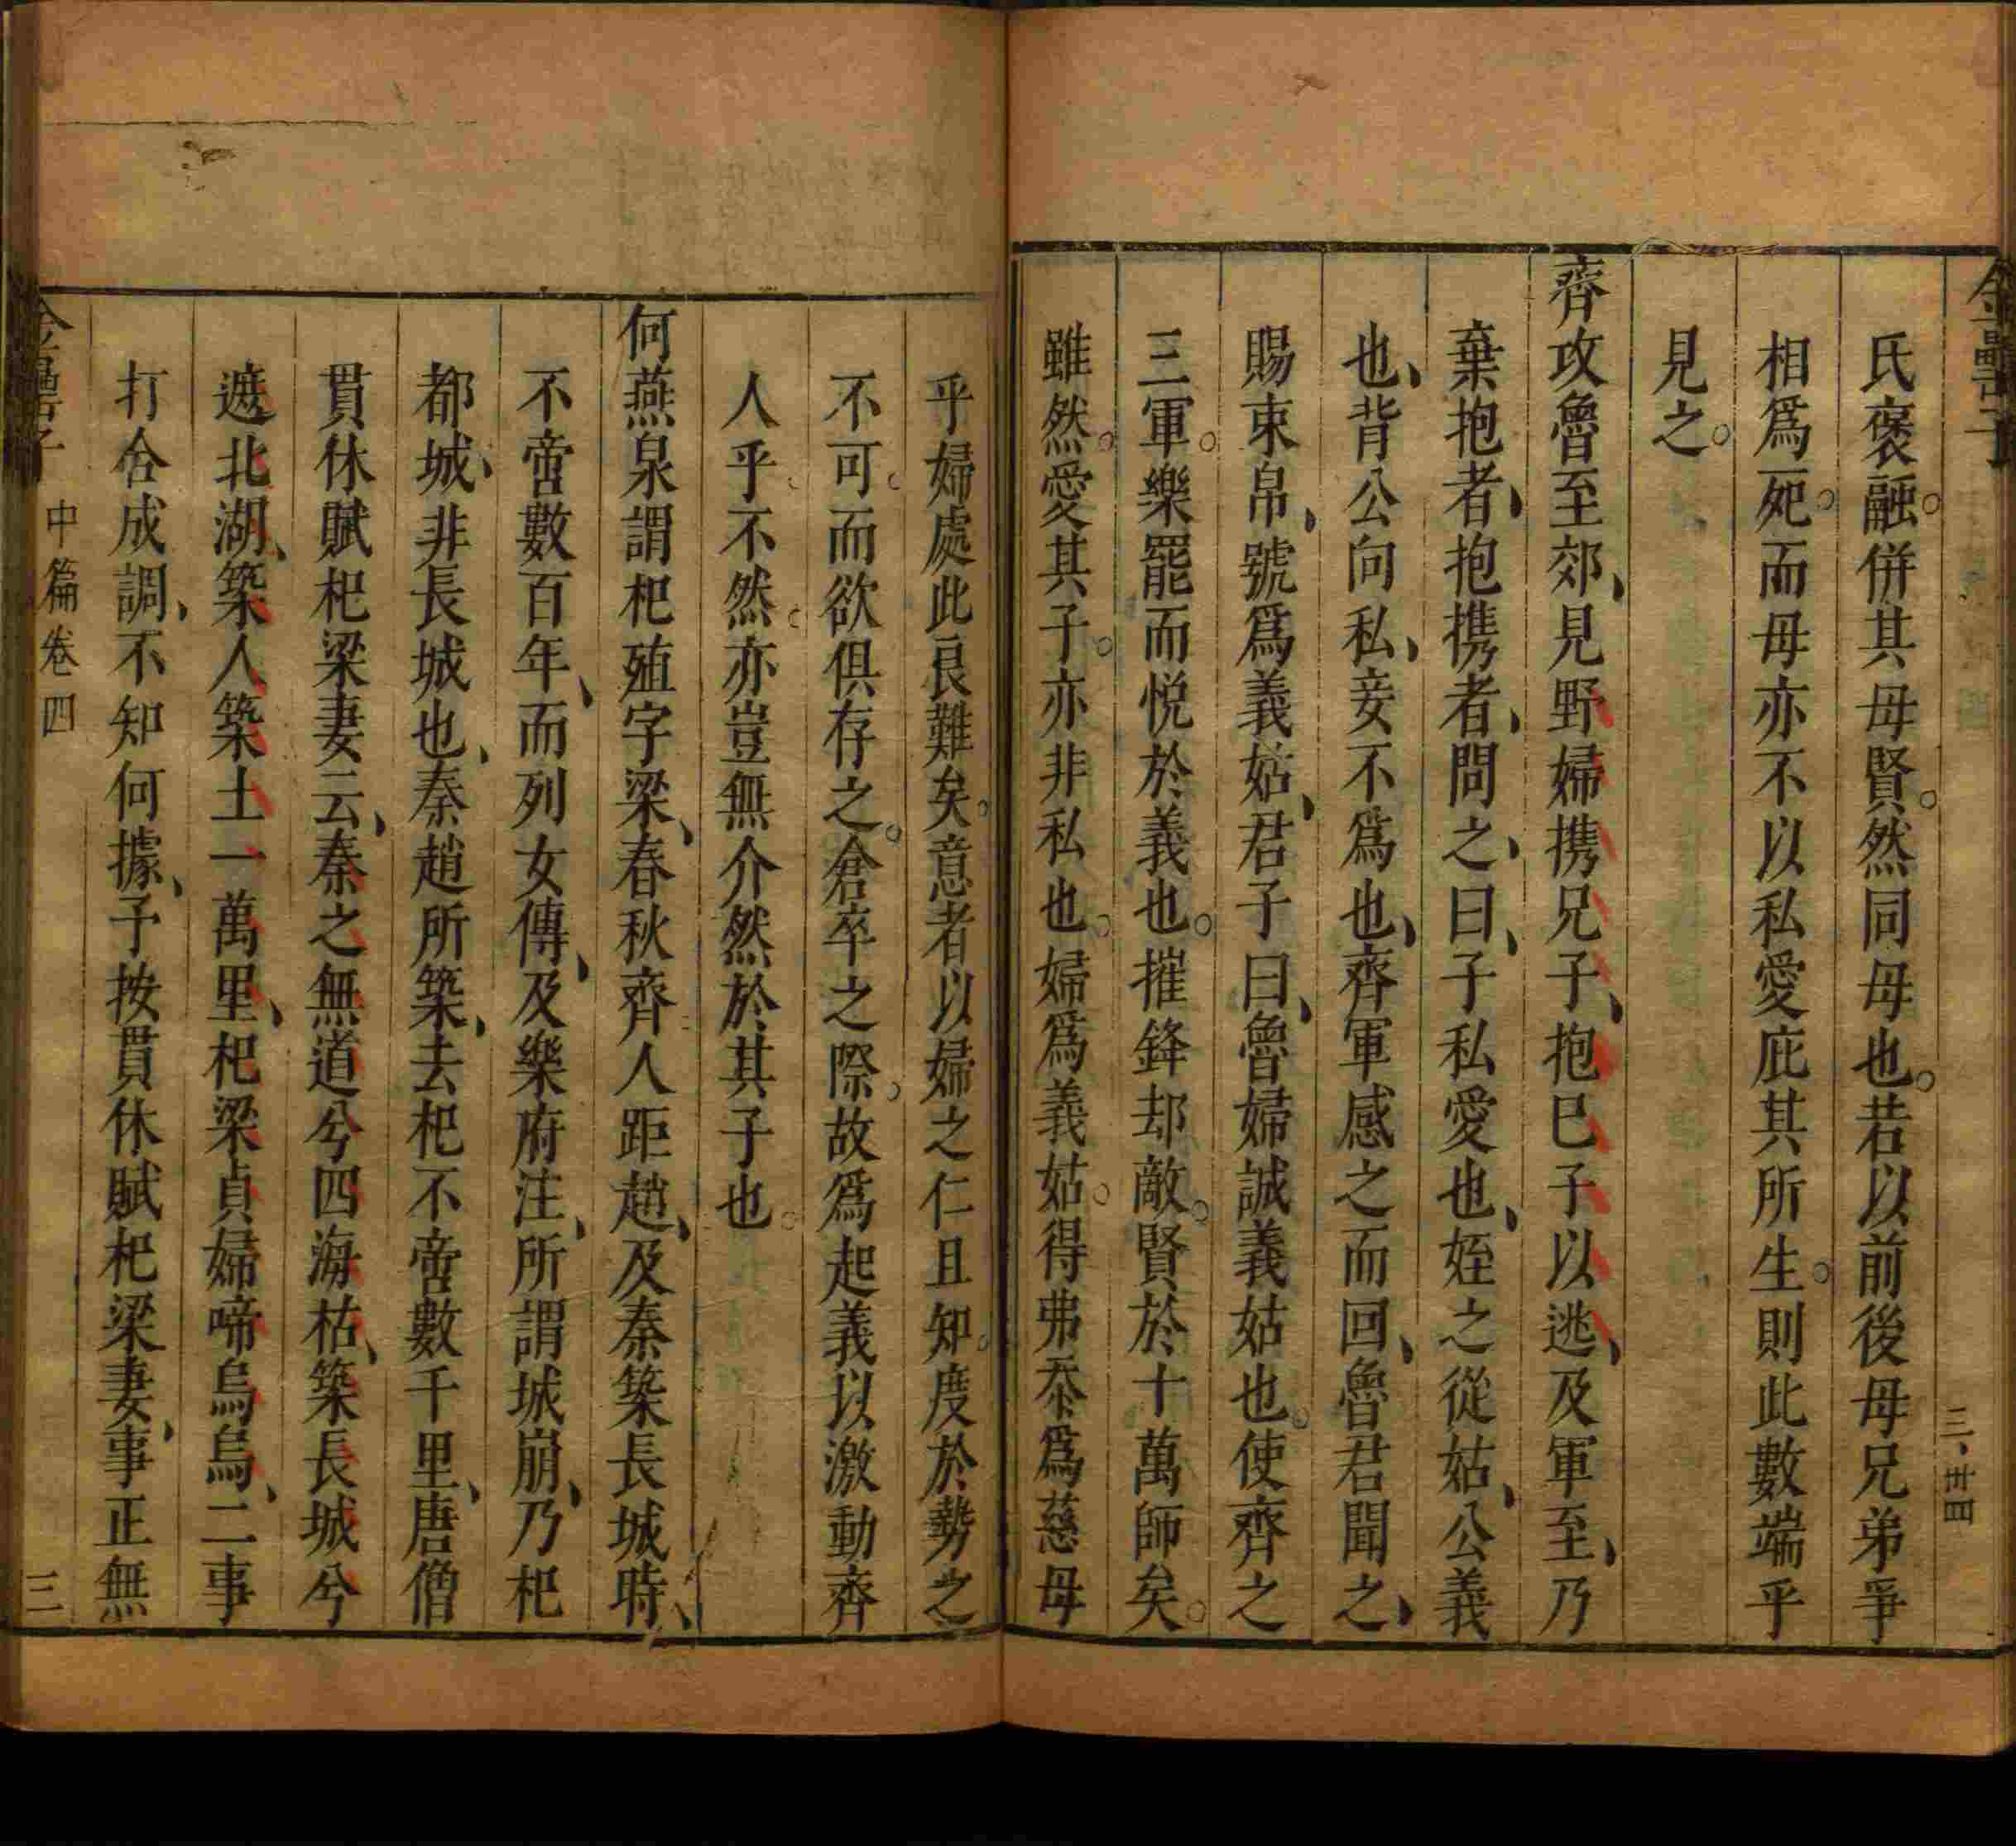 金罍子
三、卅四
氏褒融。併其母賢。然同母也。若以前後母兄弟爭
相爲死。而母亦不以私愛庇其所生。則此數端乎
見之。
齊攻魯至郊、見野婦携兄子、抱巳子以逃、及軍至、乃
棄抱者、抱携者、問之、曰、子私愛也、姪之從姑、公義
也、背公向私、妾不爲也、齊軍感之而回、魯君聞之、
賜束帛、號爲義姑、君子曰、魯婦誠義姑也。使齊之
三軍。樂罷而悅於義也。摧鋒却敵。賢於十萬師矣。
雖然。愛其子。亦非私也。婦爲義姑。得弗忝爲慈母
乎婦處此良難矣。意者以婦之仁且知。度於勢之
不可。而欲俱存之。倉卒之際。故爲起義以激動齊
人乎。不然。亦豈無介然於其子也。
何燕泉謂杞殖字梁、春秋齊人距趙、及秦築長城時、
不啻數百年、而列女傳、及樂府注、所謂城崩、乃杞
都城、非長城也、秦趙所築、去杞不啻數千里、唐僧
貫休賦杞梁妻云、秦之無道兮四海枯、築長城兮
遮北湖、築人築土一萬里、杞梁貞婦啼烏烏、二事
打合成調、不知何據、予按貫休賦杞梁妻、事正無
金罍子
中篇卷四
三